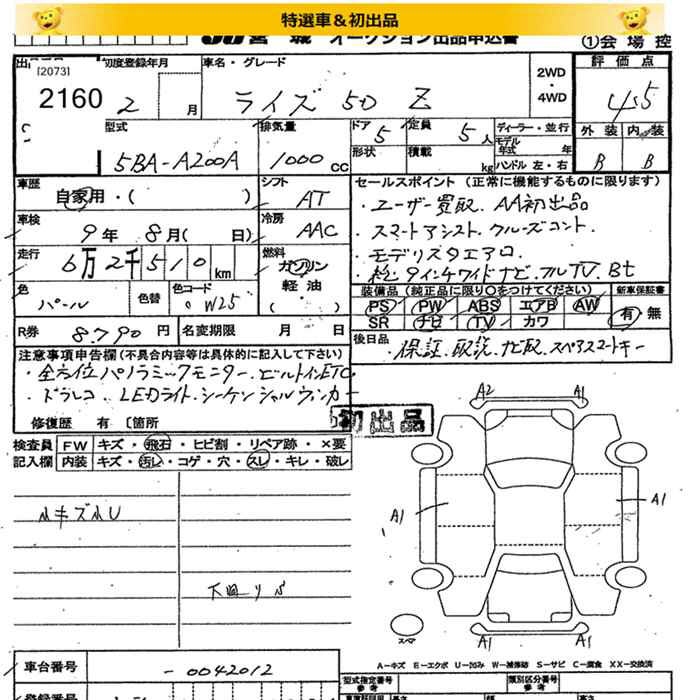 特選車&初出品
JU宮城 オークション出品申込書
①会場控
[2073]
2160
初度登録年月
2 月
車名・グレード
ライズ 5D Z
2WD
・
4WD
評価点
4.5
外装 内装
B B
型式
5BA-A200A
排気量
1000 CC
ドア
5
定員
5 人
形状
積載
kg
ディーラー・並行
モデル年式 年
ハンドル 左・右
車歴
自家用・( )
シフト
AT
車検
9年 8月( 日)
冷房
AAC
走行
6万2千510km
燃料
ガソリン
軽・油
( )
色
パール
色替
色コード
W25
R券 8790 円
名変期限 月 日
セールスポイント(正常に機能するものに限ります)
・ユーザー買取、AA初出品
・スマートアシスト、クルーズコント
・モデリスタエアロ
・純9インチワイドナビ、フルTV、Bt
装備品(純正品に限り〇をつけてください)
PS PW ABS エアB AW
SR ナビ TV カワ
新車保証書
有・無
後日品
・保証、取説、ナビ取、スペアスマートキー
注意事項申告欄(不具合内容等は具体的に記入して下さい)
・全方位パノラミックモニター、ビルトインETC
・ドラレコ、LEDライト、シーケンシャルウィンカー
修復歴 有〔箇所
初出品
検査員
記入欄
FW キズ・飛石・ヒビ割・リペア跡・×要
内装 キズ・汚レ・コゲ・穴・スレ・キレ・破レ
小キズ小U
下回りS
A2 A1
A1 A1
A1 A1
スペア
A−キズ E−エクボ U−凹み W−補修跡 S−サビ C−腐食 XX−交換済
車台番号
-0042012
登録番号
型式指定番号
参考
類別区分番号
参考